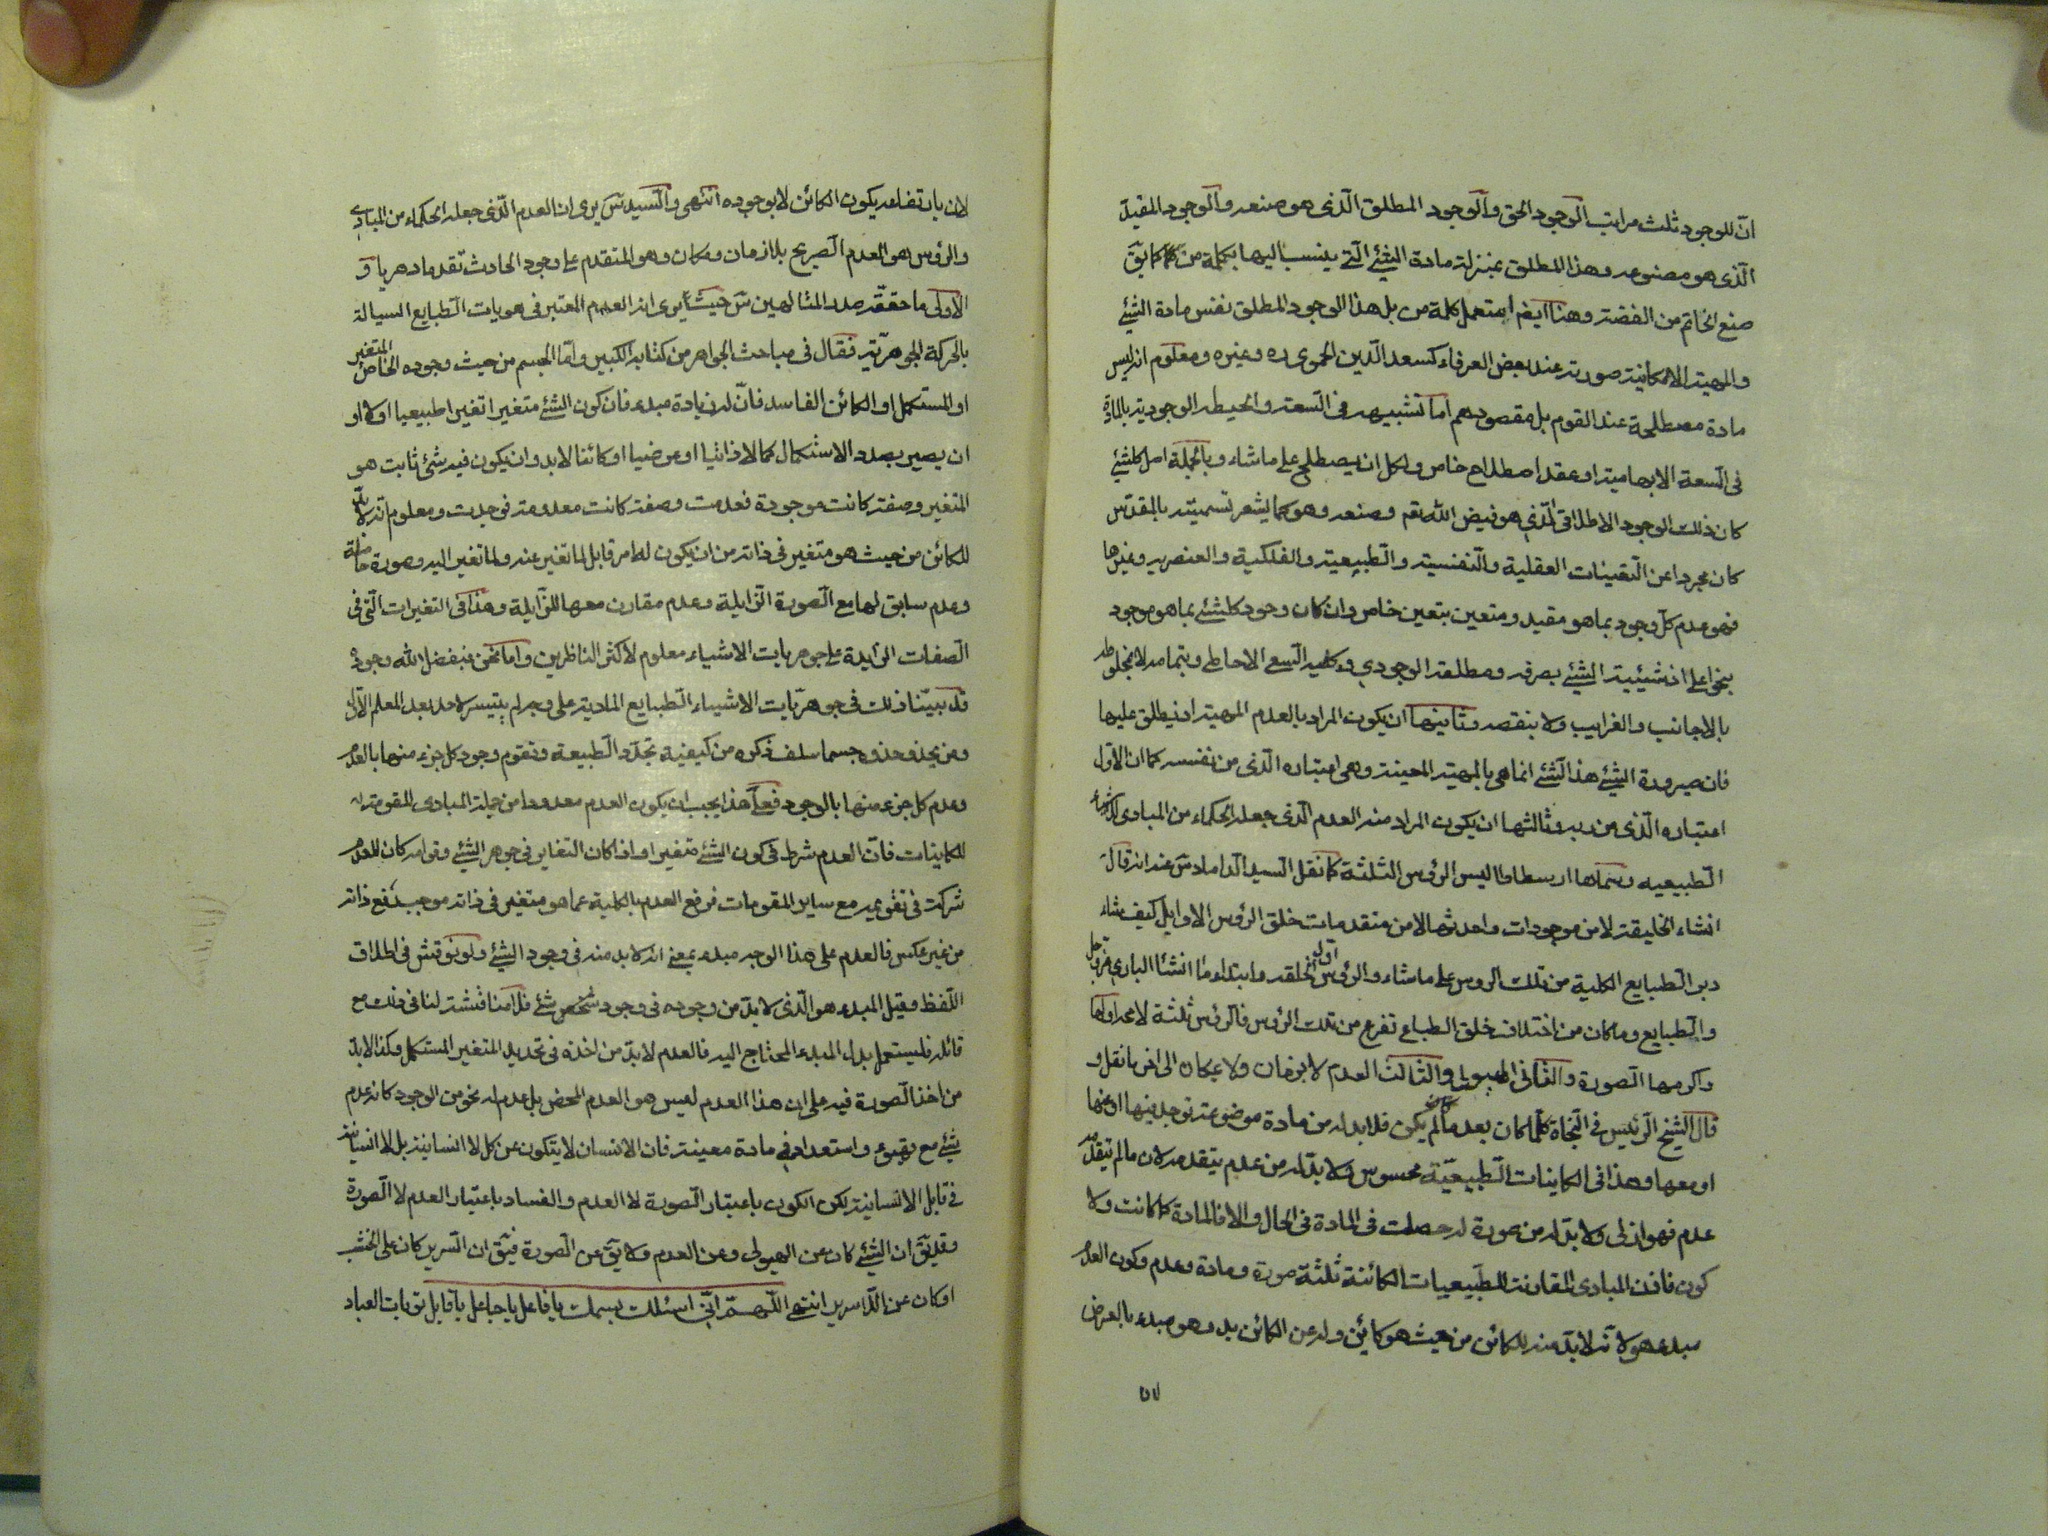 انّ للوجود ثلث مراتب الوجود الحق والوجود المطلق الّذى هو صنعه والوجود المقيد
الّذى هو مصنوعه وهذا المطلق بمنزلة مادة الشئ الّتى ينسب اليها بكلمة من كما يقَ
صنع الخاتم من الفضة وهنا ايضا استعمل كلمة من بل هذا الوجود المطلق نفس مادة الشئ
والمهية الامكانية صورته عند بعض العرفاء كسعد الدّين الحموى ره وغيره ومعلوم انه ليس
مادة مصطلحة عند القوم بل مقصودهم اما تشبيهه فى السعة والحيطه الوجودية بالمادة
فى السعة الابهامية او عقد اصطلاح خاص ولكل ان يصطلح على ماشاء وبالجملة اصل كلشئ
كان ذلك الوجود الاطلاقى الّذى هو فيض الله تعم وصنعه وهو كما يشعر تسميته بالمقدس
كان مجردا عن التعينات العقلية والنفسية والطبيعية والفلكية والعنصريه وغيرها
فهو عدم كلّ وجود بما هو مقيد ومتعين بتعين خاص وان كان وجود كلشئ بما هو موجود
بنحو اعلى اذ شيئية الشئ بصرفه ومطلقه الوجودى وكليه السعى الاحاطى وبتمامه لا بمخلوطه
بالاجانب والغرايب ولا بنقصه وثانيها ان يكون المراد بالعدم المهية اذ يطلق عليها
فان صيرورة الشئ هذا الشئ انما هى بالمهية المعينة وهى اعتباره الّذى من نفسه كما ان الاول
اعتباره الّذى من ربه وثالثها ان يكون المراد منه العدم الّذى جعله الحكماء من المبادى
الطبيعيه وسماها ارسطاطاليس الرؤس الثلثة كما نقل السيد الداماد سَ عنه انه قال
انشاء الخليقة لا من موجودات واحدثها لا من متقدمات خلق الرؤس الاوايل كيف شاء
دبر الطبايع الكلية من تلك الروس على ماشاء والرؤس اول الخلقه وابتداء ما انشئا البارى
والطبايع وما كان من اختلاف خلق الطباع تفرع من تلك الرؤس فالرؤس ثلثة لا محه اولها
واكرمها الصورة والثانى الهيولى والثالث العدم لا بزمان ولا بمكان الى اخر ما نقل و
قال الشيخ الرئيس فى النجاة كلما كان بعد مالم يكن فلا بد له من مادة موضوعة توجد فيها او عنها
او معها وهذا فى الكاينات الطبيعيّة محسوس ولا بدّ له من عدم يتقدمه لان مالم يتقدمه
عدم فهو ازلى ولا بدّ له من صورة له حصلت فى المادة فى الحال والا فالمادة كما كانت ولا
كون فاذن المبادى المقارنة للطبيعيات الكائنة ثلثة صورة ومادة وعدم وكون العدم
مبدء هو لانه لا بدّ منه للكائن من حيث هو كاين وله عن الكائن بد وهو مبدء بالعرض
لان بارتفاعه يكون الكائن لا بوجوده انتهى والسيد سَ يرى ان العدم الّذى جعله الحكماء من المبادى
والرؤس هو العدم الصريح بلا زمان ومكان وهو المتقدم على وجود الحادث تقدما دهريا و
الاولى ما حققه صدر المتالهين سَ حيث يرى انه العدم المعتبر فى هويات الطبايع السيالة
بالحركة الجوهريّة فقال فى مباحث الجواهر من كتابه الكبير واما الجسم من حيث وجوده الخاص المتغير
او المستكمل او الكائن الفاسد فانّ له زيادة مبدء فان كون الشئ متغيرا تغيرا طبيعيا اولا او
ان يصير بصدد الاستكمال كمالا ذاتيا او عرضيا او كائنا لا بد وان يكون فيه شئ ثابت هو
المتغير وصفة كانت موجودة فعدمت وصفة كانت معدومة فوجدت ومعلوم انه لا بدّ
للكائن من حيث هو متغير فى ذاته من ان يكون له امر قابل لما تغير عنه ولما تغير اليه وصورة حاصلة
وعدم سابق لها مع الصورة الزايلة وعدم مقارن معها للزايلة وهذا فى التغيرات الّتى فى
الصفات الزائدة على جوهريات الاشياء معلوم لاكثر الناظرين واما نحن فبفضل الله وجوده
قد بينا ذلك فى جوهريّات الاشياء الطبايع المادية على وجه لم يتيسر لاحد بعد المعلم الاول
ومن يحذو حذوه حسبما سلف ذكره من كيفية تجدّد الطبيعة وتقوم وجود كل جزء منها بالعدم
وعدم كل جزء منها بالوجود فعلى هذا يجب ان يكون العدم معدودا من جملة المبادى المقومة له
للكاينات فانّ العدم شرط فى كون الشئ متغيرا واذا كان التغاير فى جوهر الشئ وقوامه كان للعدم
شركة فى تقويمه مع ساير المقومات فرفع العدم بالكلية عما هو متغير فى ذاته موجب لرفع ذاته
من غير عكس فالعدم على هذا الوجه مبدء بمعنى انه لا بد منه فى وجود الشئ ولو نوقش فى اطلاق
اللفظ وقيل المبدء هو الّذى لا بدّ من وجوده فى وجود شئ فلا مناقشة لنا فى ذلك مع
قائله فليستعمل بدل المبدء المحتاج اليه فالعدم لا بدّ من اخذه فى تحديد المتغير المستكمل وكذا لا بدّ
من اخذ الصورة فيه على ان هذا العدم ليس هو العدم المحض بل عدم له نحو من الوجود كانه عدم
شئ مع تهيوء واستعداد فى مادة معينة فان الانسان لا يتكون عن كل لا انسانية بل لا انسانية
فى قابل الانسانية لكن الكون باعتبار الصورة لا العدم والفساد باعتبار العدم لا الصورة
وقد يقَ ان الشئ كان عن الهيولى وعن العدم ولا يقَ عن الصورة فيقَ ان السرير كان على الخشب
او كان عن الّلا سرير انتهى اللّهمّ انّى اسئلك بسمك يا فاعل يا جاعل يا قابل توبات العباد